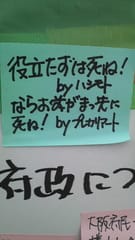 役立たずは死ね!
byハシモト
ならお前がまっ先に
死ね! byプレカリアート
府政につ
大阪府民・